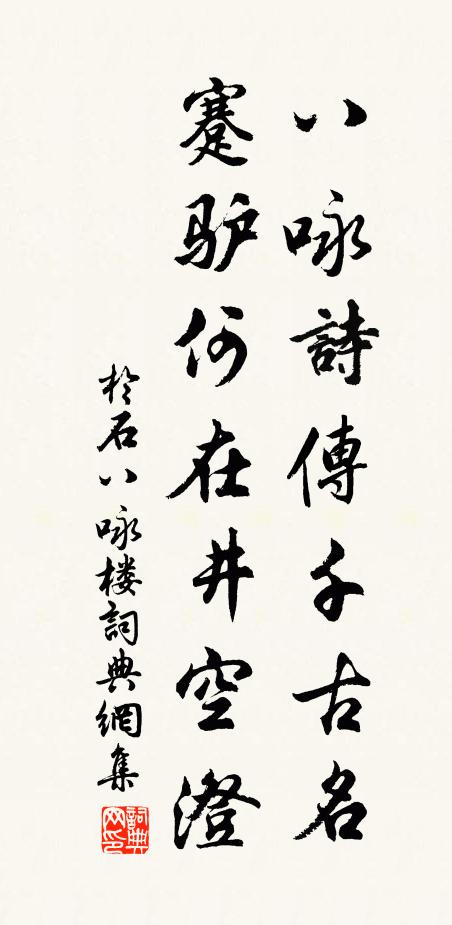 八咏詩傳千古名
蹇驴何在井空澄
於石八咏楼詞典網集
詞典网印